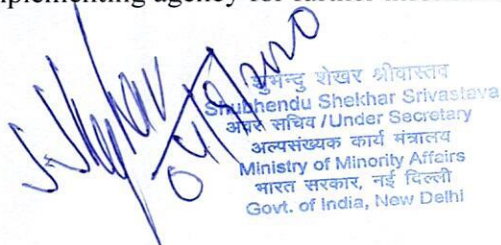 mplementing agency for further
शुभेन्दु शेखर श्रीवास्तव
Shubhendu Shekhar Srivastava
अवर सचिव /Under Secretary
अल्पसंख्यक कार्य मंत्रालय
Ministry of Minority Affairs
भारत सरकार, नई दिल्ली
Govt. of India, New Delhi